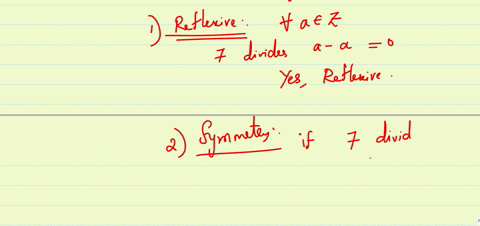 1) Reflexive:. ∀ a ∈ Z
7 divides a - a = 0
Yes, Reflexive.
2) Symmetry:. if 7 divid